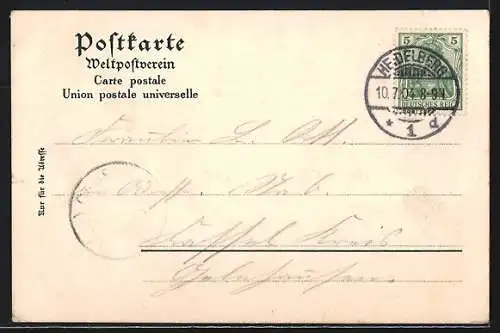 Postkarte
Weltpostverein
Carte postale
Union postale universelle
5 5
DEUTSCHES REICH
HEIDELBERG
10.7.04.8-9N
* 1 d
Nur für die Adresse
Fräulein L. Ott.
Kassel Kreis
Gelnhausen